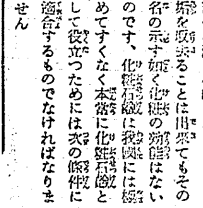 垢を取去ることは出來てもその
名の示す如く化粧の効能はない
のです、化粧石鹼は我國には極
めてすくなく本當に化粧石鹼と
して役立つためには次の條件に
適合するものでなければなりま
せん